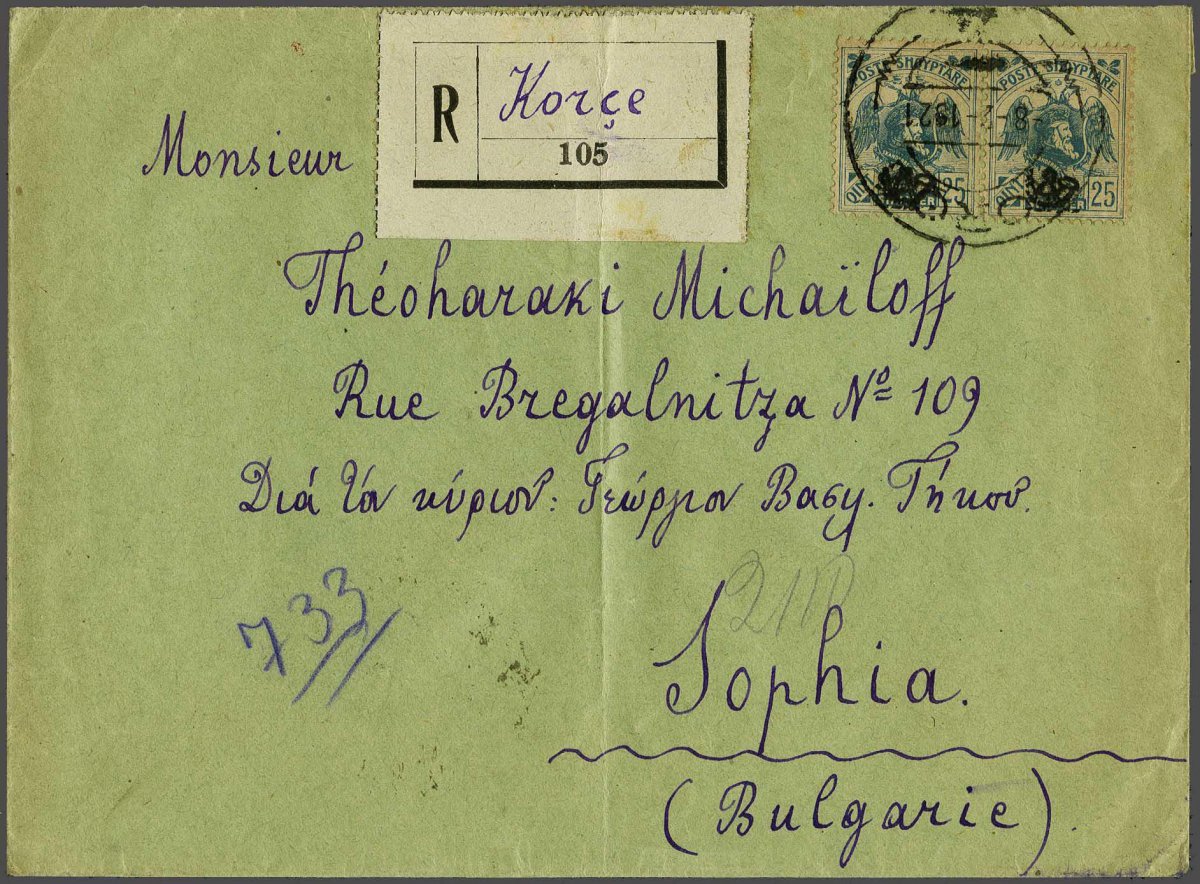 R Korçe
105
POSTE SHQYPTARE POSTE SHQYPTARE
25 25
1921
Monsieur
Théoharaki Michaïloff
Rue Bregalnitza Nº 109
Διά τόν κύριον: Γεώργιον Βασιλ. Τήκου.
733
Sophia.
(Bulgarie).